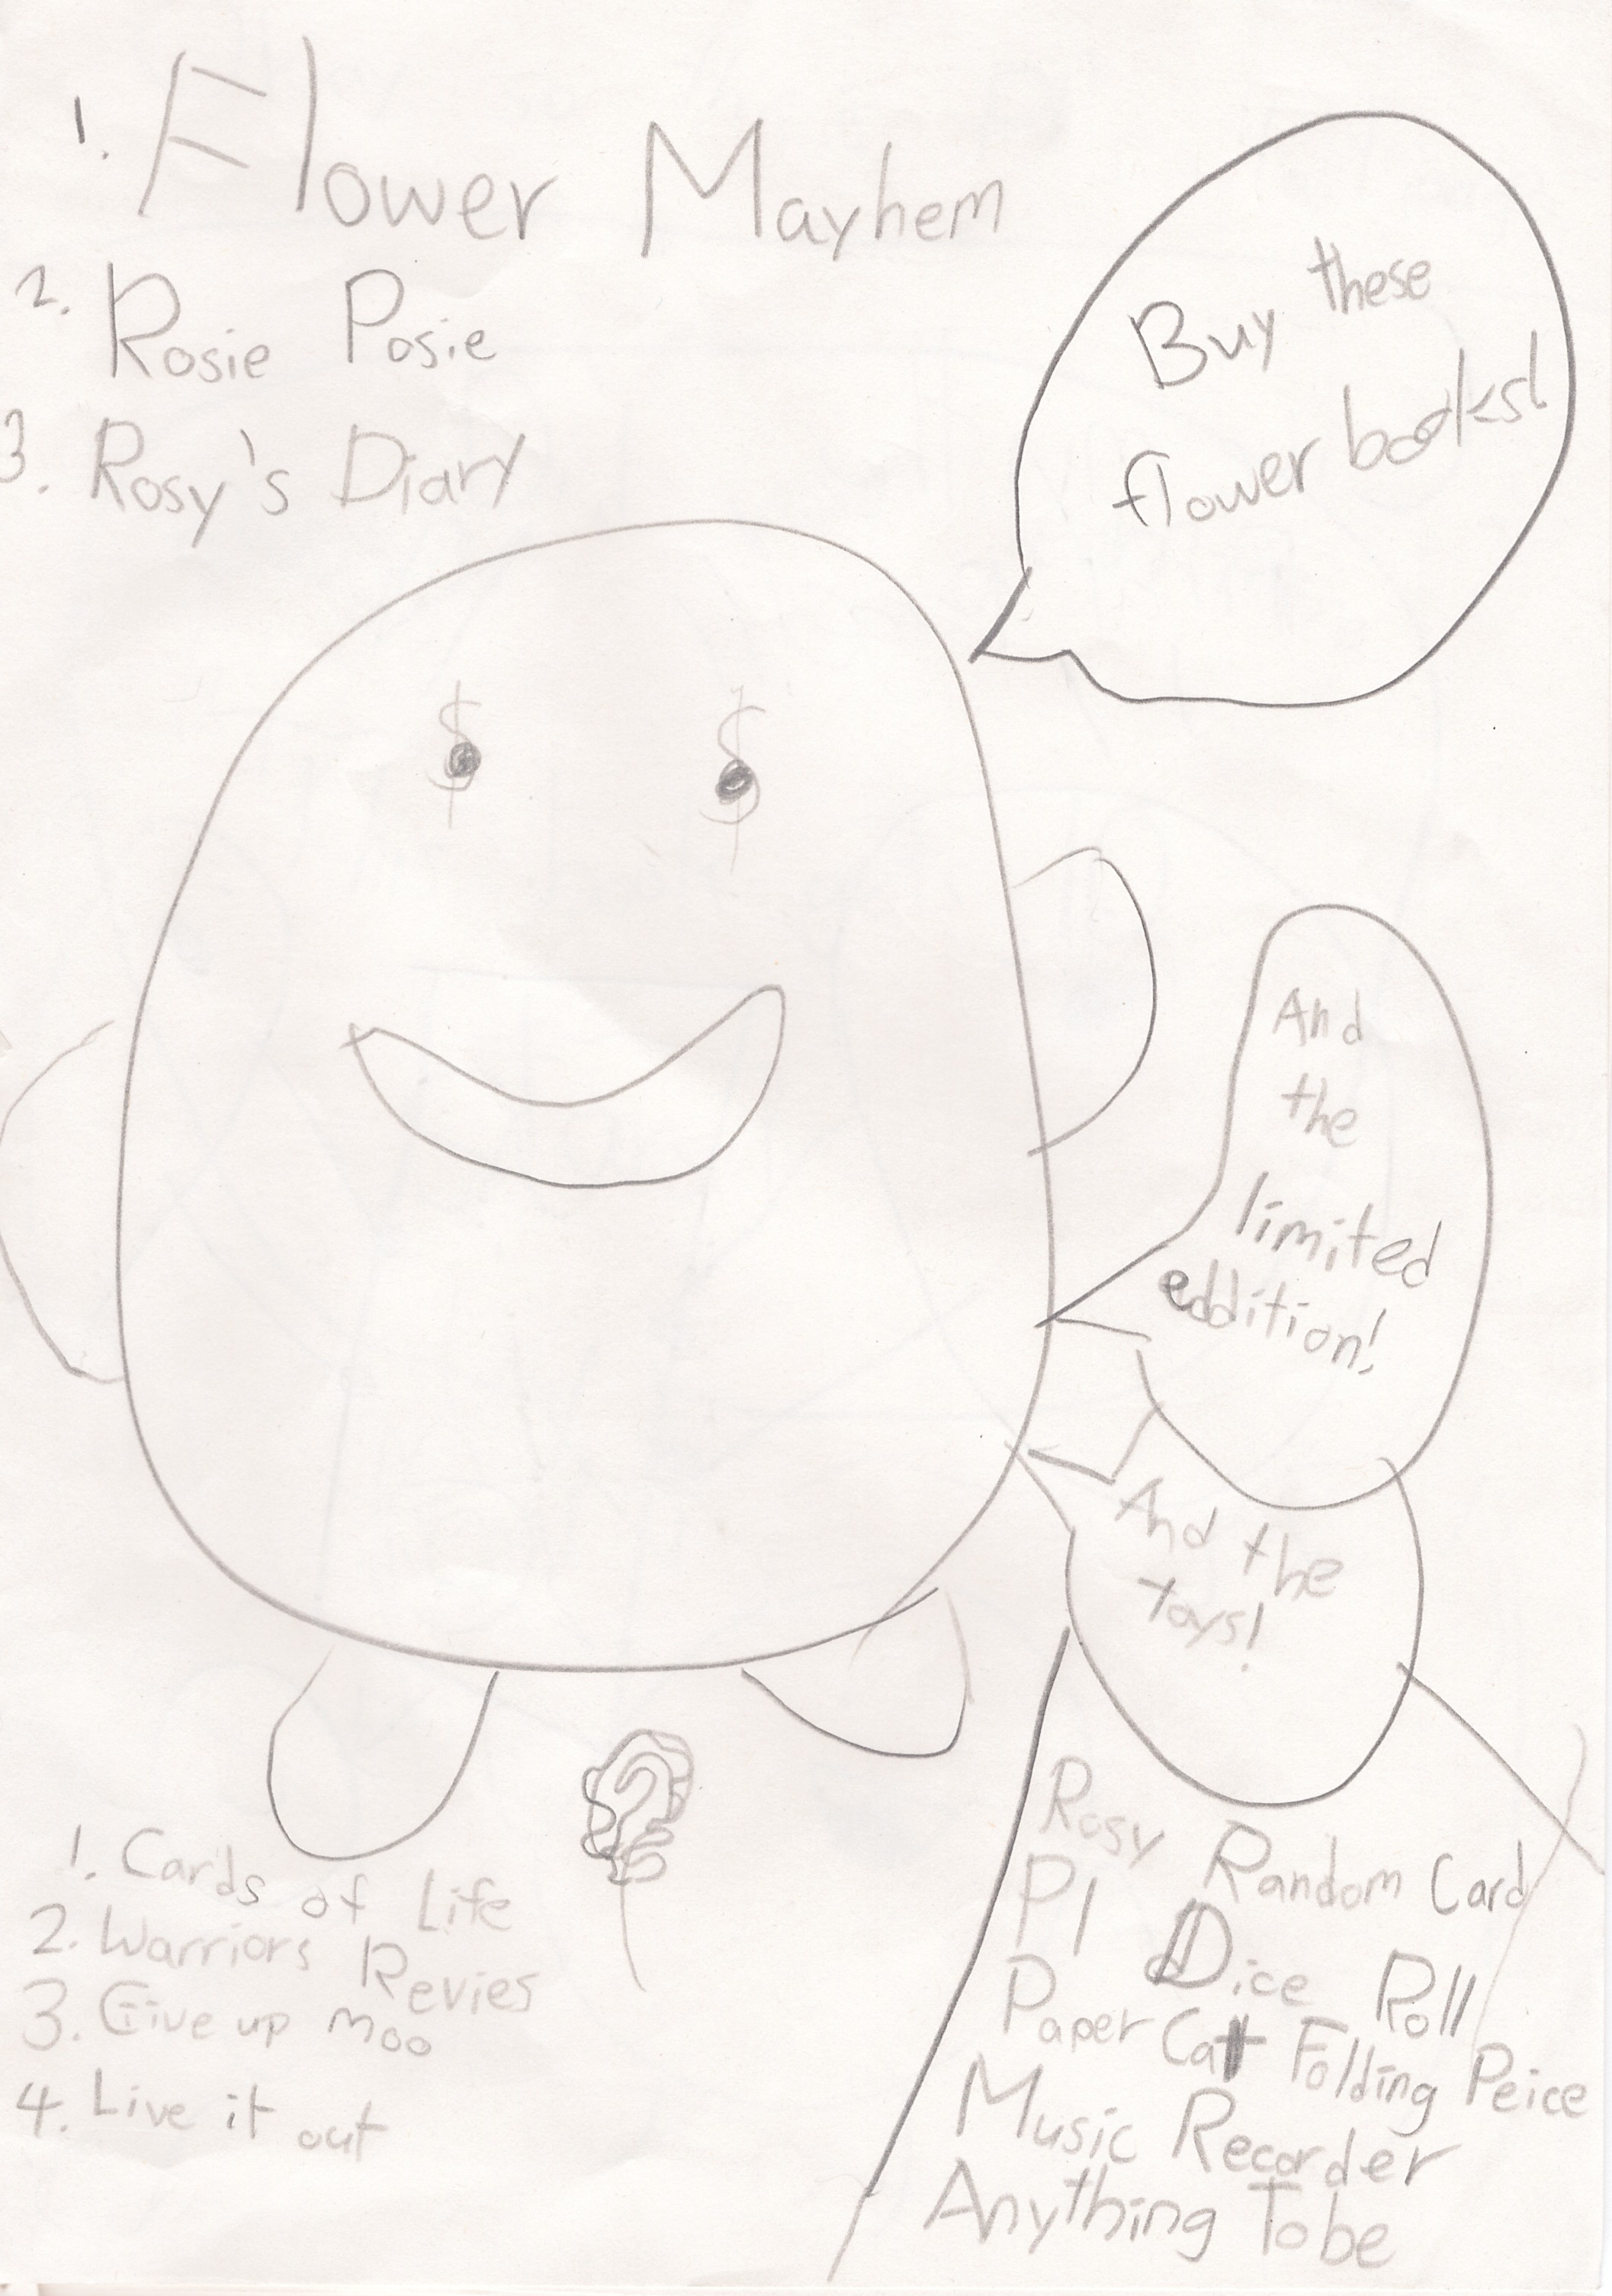 1. Flower Mayhem
2. Rosie Posie
3. Rosy's Diary
Buy these
flower books!
$ $
And
the
limited
eddition!
And the
Toys!
1. Cards of Life
2. Warriors Revies
3. Give up moo
4. Live it out
Rosy Random Card
P1 Dice Roll
Paper Cat Folding Peice
Music Recorder
Anything To be